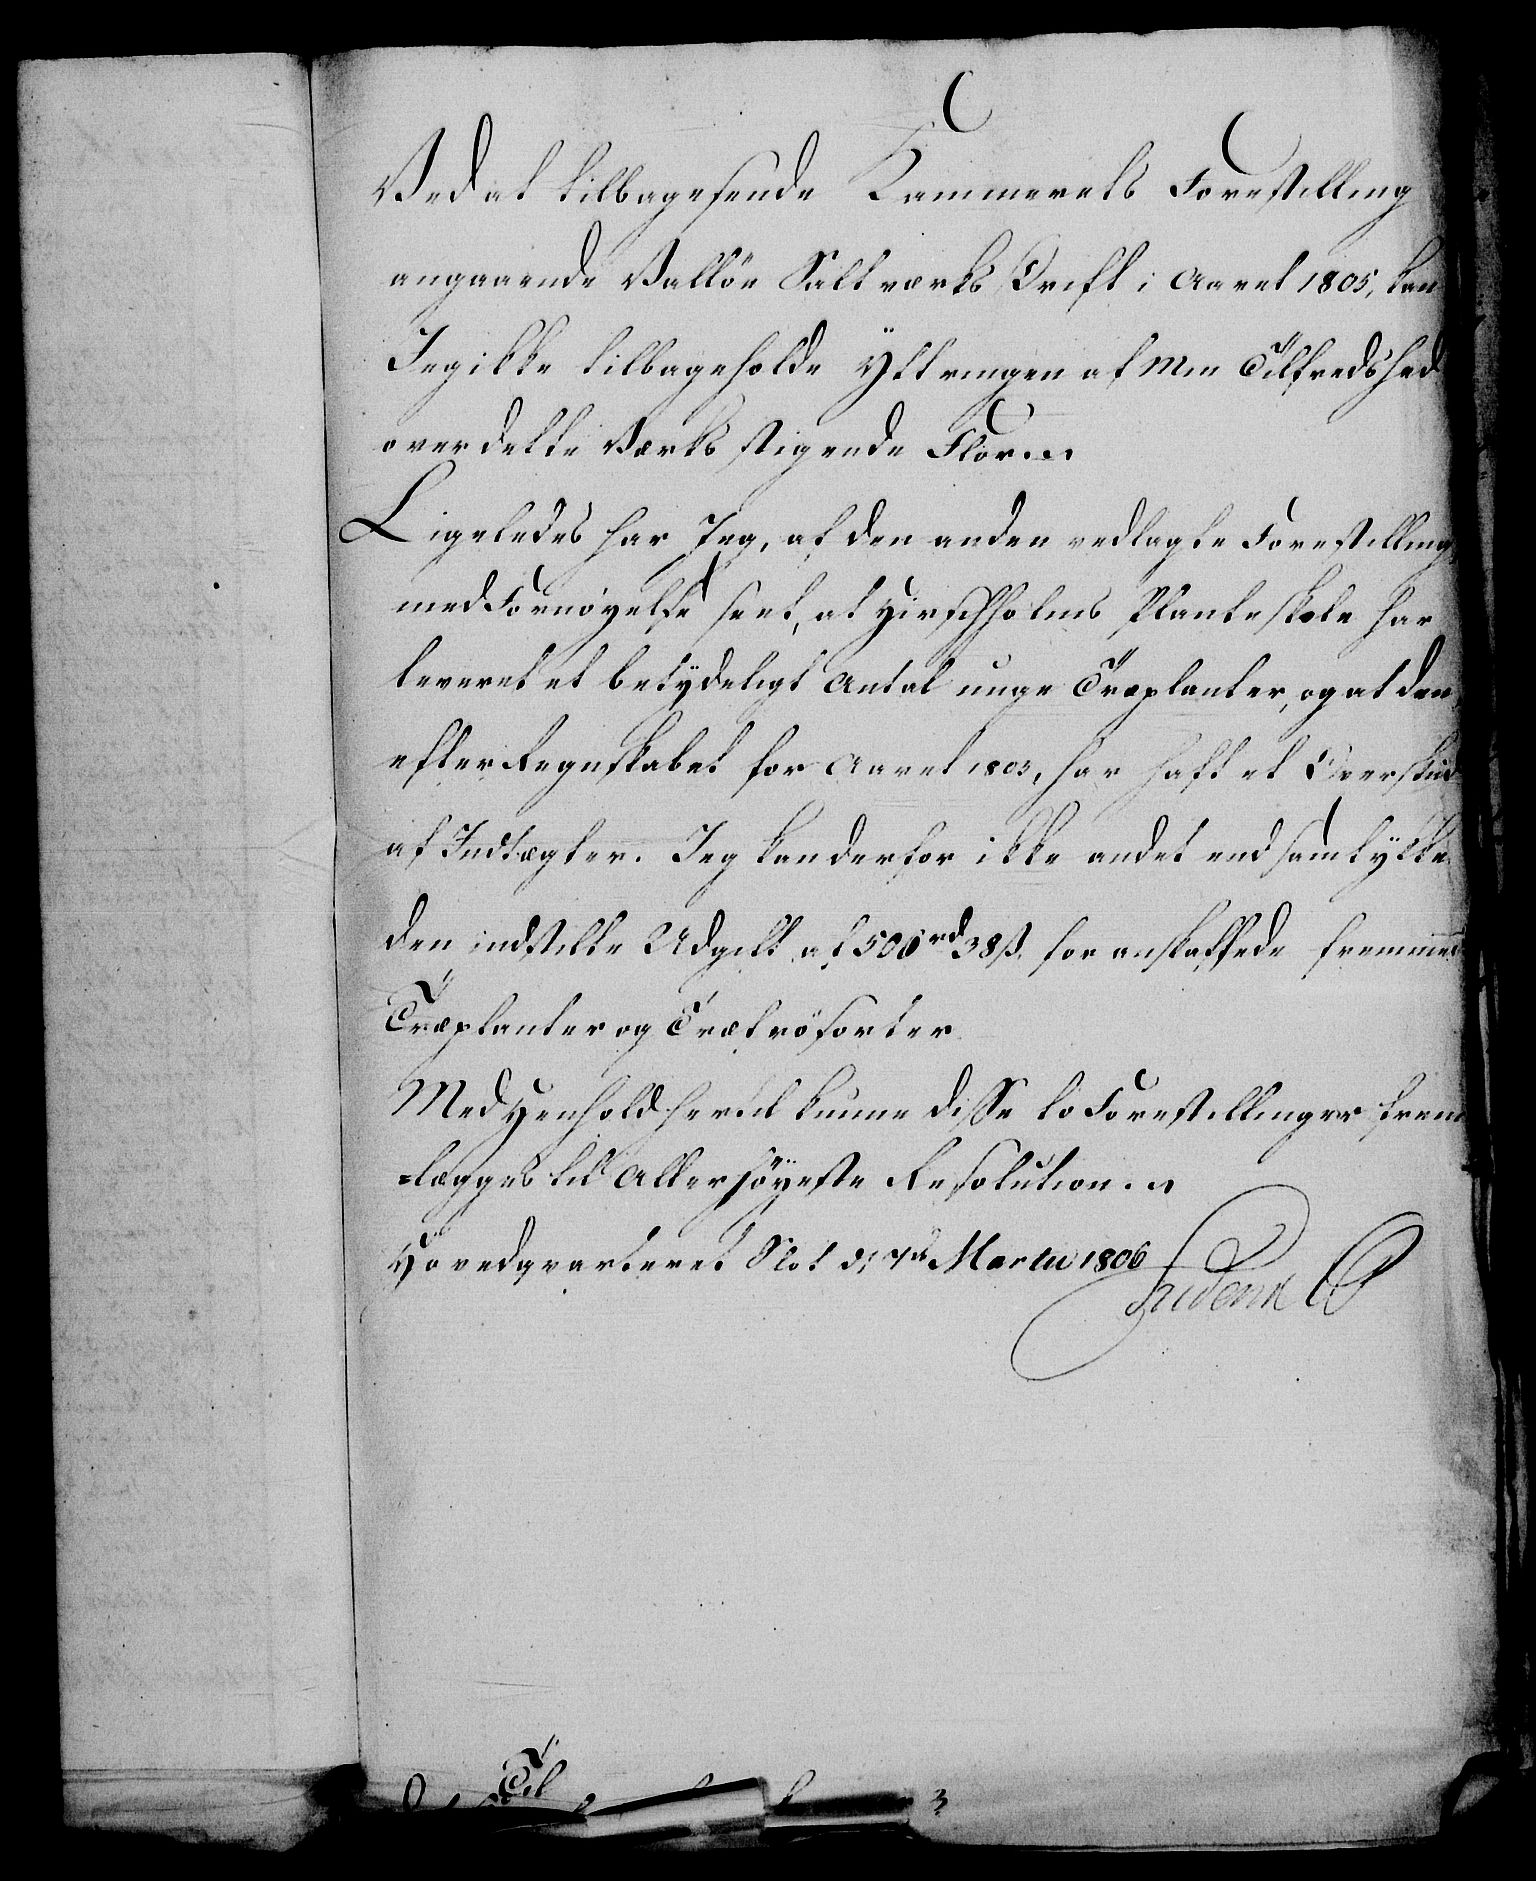 Ved at tilbagesende Kammerets Forestilling
angaaende Valløe Saltværks Drift i Aaret 1805, kan
Jeg ikke tilbageholde Yttringen af Min Tilfredshed
over dette Værks stigende Flor.
Ligeledes har Jeg, af den anden vedlagte Forestilling,
med Fornøyelse seet, at Hirschholms Planteskole har
leveret et betydeligt Antal unge Træplanter, og at den,
efter Regnskabet for Aaret 1805, har haft et Overskud
af Indtægter. Jeg kan derfor ikke andet end samtykke
den indstilte Udgift af 506 rd 38 ß. for anskaffede fremmede
Træplanter og Træfrösorter.
Med Henhold hertil kunne disse to Forestillinger frem
=lægges til Allerhöyeste Resolution.
Hovedqvarteret Slot d: 7de Martii 1806
Friderik
Til